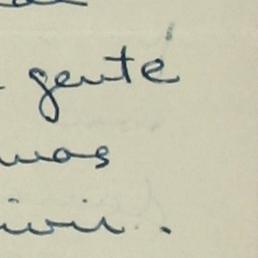 gente
mos
ivir.